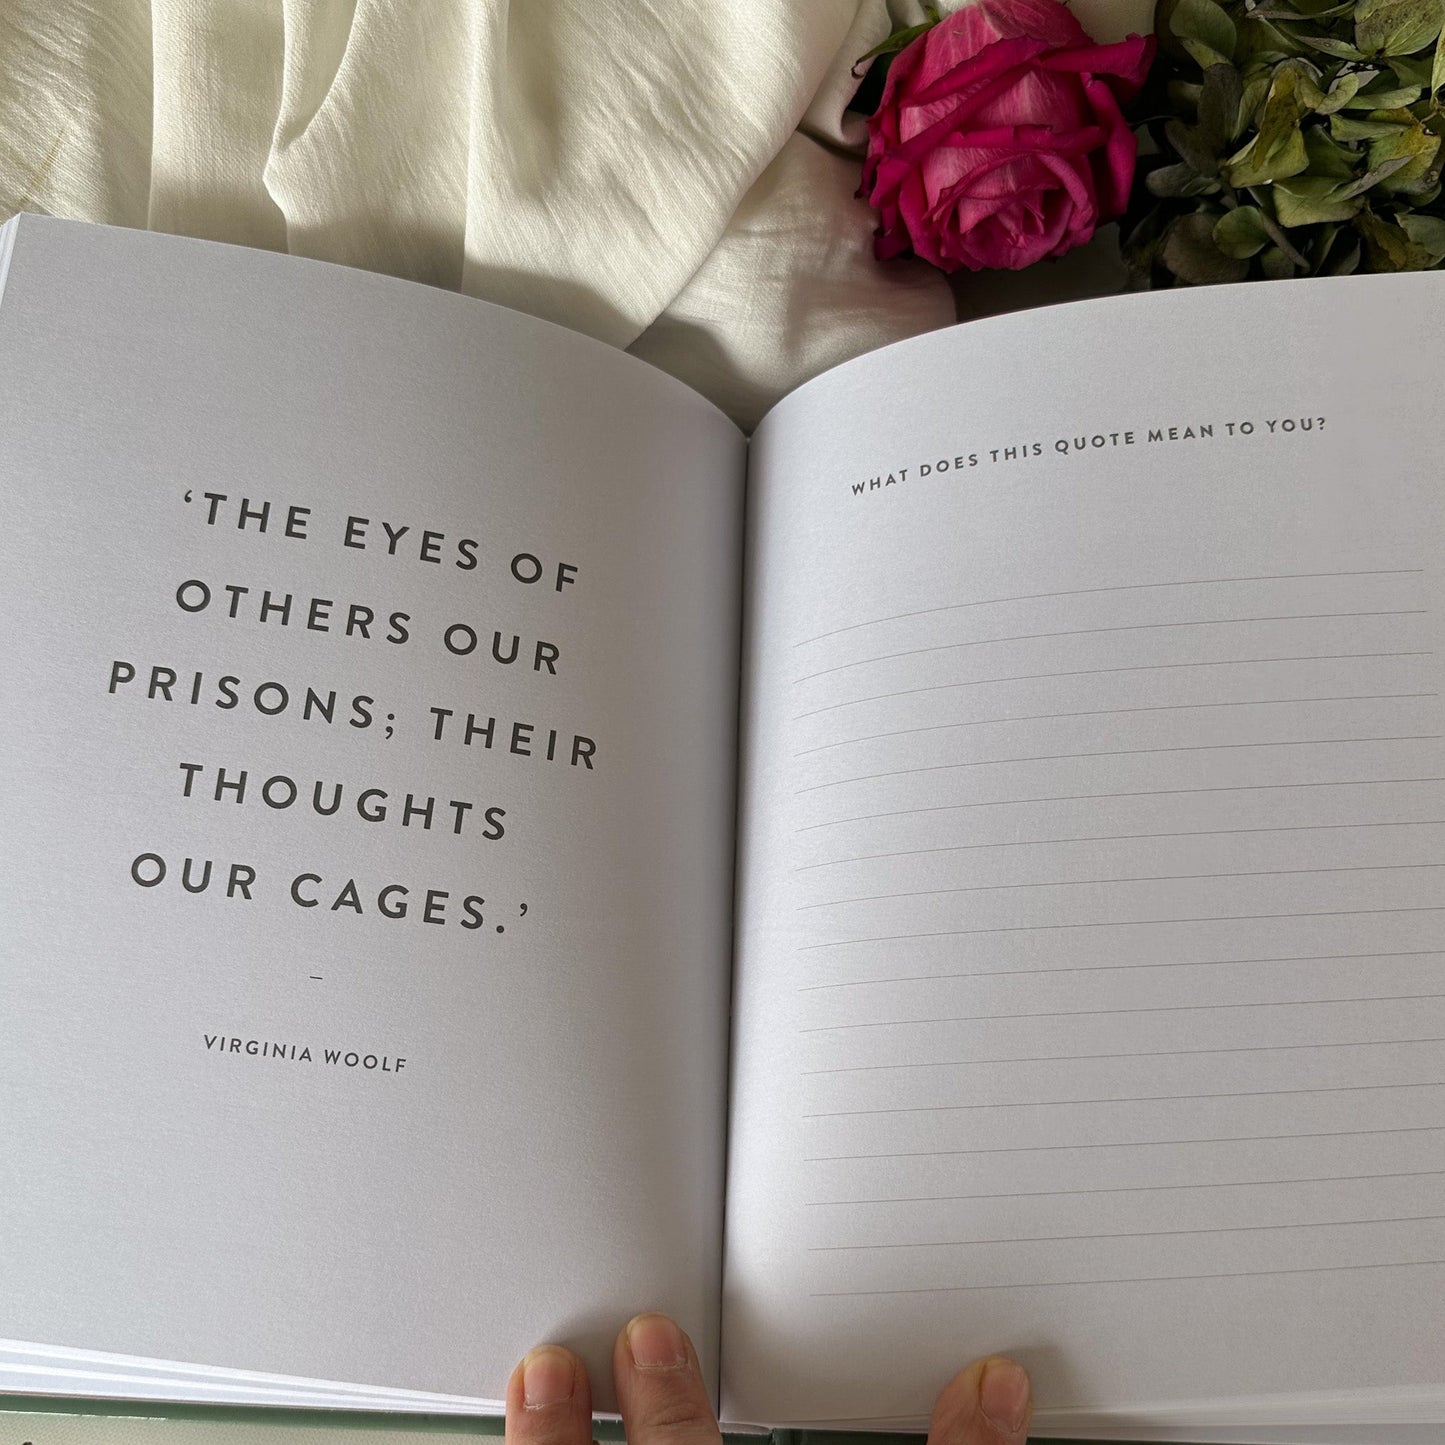 ‘THE EYES OF
OTHERS OUR
PRISONS; THEIR
THOUGHTS
OUR CAGES.’
–
VIRGINIA WOOLF
WHAT DOES THIS QUOTE MEAN TO YOU?